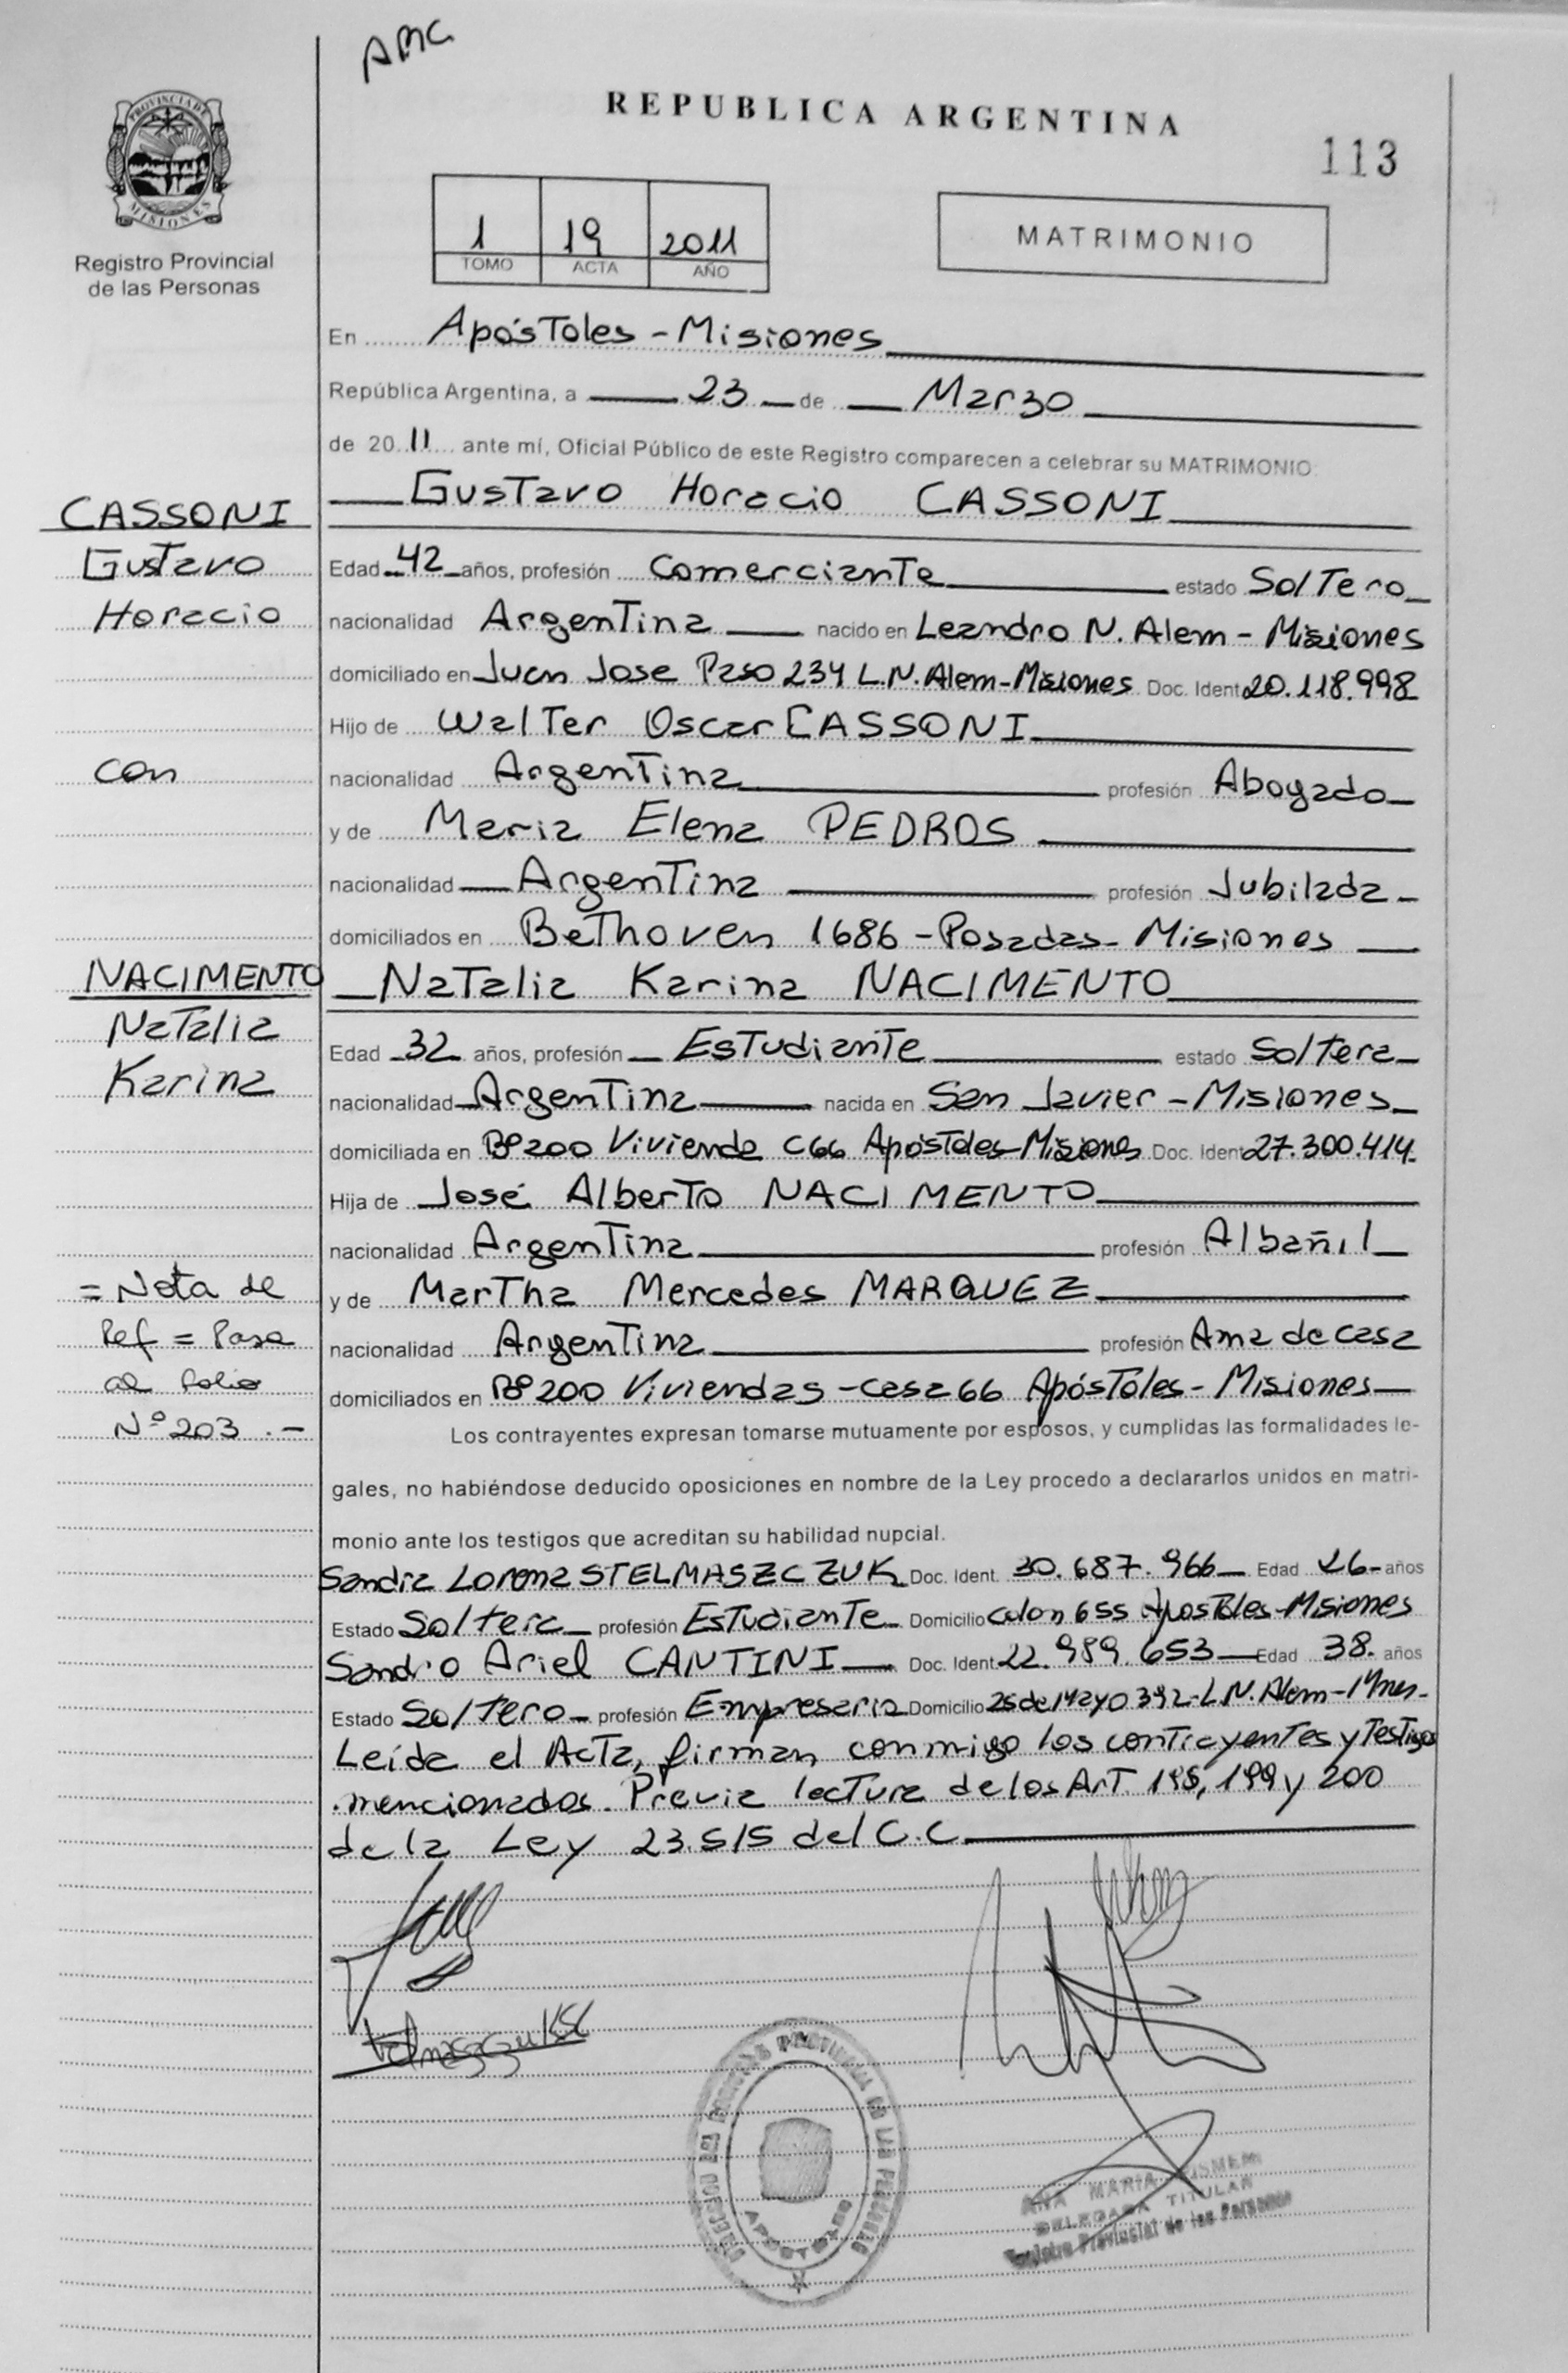 AMC
REPUBLICA ARGENTINA
113
PROVINCIA DE
MISIONES
Registro Provincial
de las Personas
1 19 2011
TOMO ACTA AÑO
MATRIMONIO
En Apóstoles - Misiones
República Argentina, a 23 de Marzo
de 2011 ante mí, Oficial Público de este Registro comparecen a celebrar su MATRIMONIO:
Gustavo Horacio CASSONI
CASSONI
Gustavo
Horacio
Edad 42 años, profesión Comerciante estado Soltero
nacionalidad Argentina nacido en Leandro N. Alem - Misiones
domiciliado en Juan Jose Paso 234 L.N. Alem-Misiones Doc. Ident 20.118.998
Hijo de Walter Oscar CASSONI
con
nacionalidad Argentina profesión Abogado
y de Maria Elena PEDROS
nacionalidad Argentina profesión Jubilada
domiciliados en Bethoven 1686 - Posadas - Misiones
NACIMENTO
Natalia
Karina
Natalia Karina NACIMENTO
Edad 32 años, profesión Estudiante estado Soltera
nacionalidad Argentina nacida en San Javier - Misiones
domiciliada en Bº 200 Vivienda C66 Apóstoles-Misiones Doc. Ident 27.300.414.
Hija de José Alberto NACIMENTO
nacionalidad Argentina profesión Albañil
y de Martha Mercedes MARQUEZ
nacionalidad Argentina profesión Ama de casa
domiciliados en Bº 200 Viviendas - casa 66 Apóstoles - Misiones
= Nota de
Ref = Pasa
al folio
Nº 203 .-
Los contrayentes expresan tomarse mutuamente por esposos, y cumplidas las formalidades le-
gales, no habiéndose deducido oposiciones en nombre de la Ley procedo a declararlos unidos en matri-
monio ante los testigos que acreditan su habilidad nupcial.
Sandra Lorena STELMASZCZUK Doc. Ident. 30.687.966 Edad 26 años
Estado Soltera profesión Estudiante Domicilio Colon 655 Apostoles-Misiones
Sandro Ariel CANTINI Doc. Ident. 22.989.653 Edad 38. años
Estado Soltero profesión Empresario Domicilio 25 de Mayo 392-L.N. Alem-Mnes-
Leída el Acta, firman conmigo los contrayentes y testigos
mencionados. Previa lectura de los Art. 198, 199 y 200
de la Ley 23.515 del C.C.
APOSTOLES
ANA MARIA
DELEGADA TITULAR
Registro Provincial de las Personas